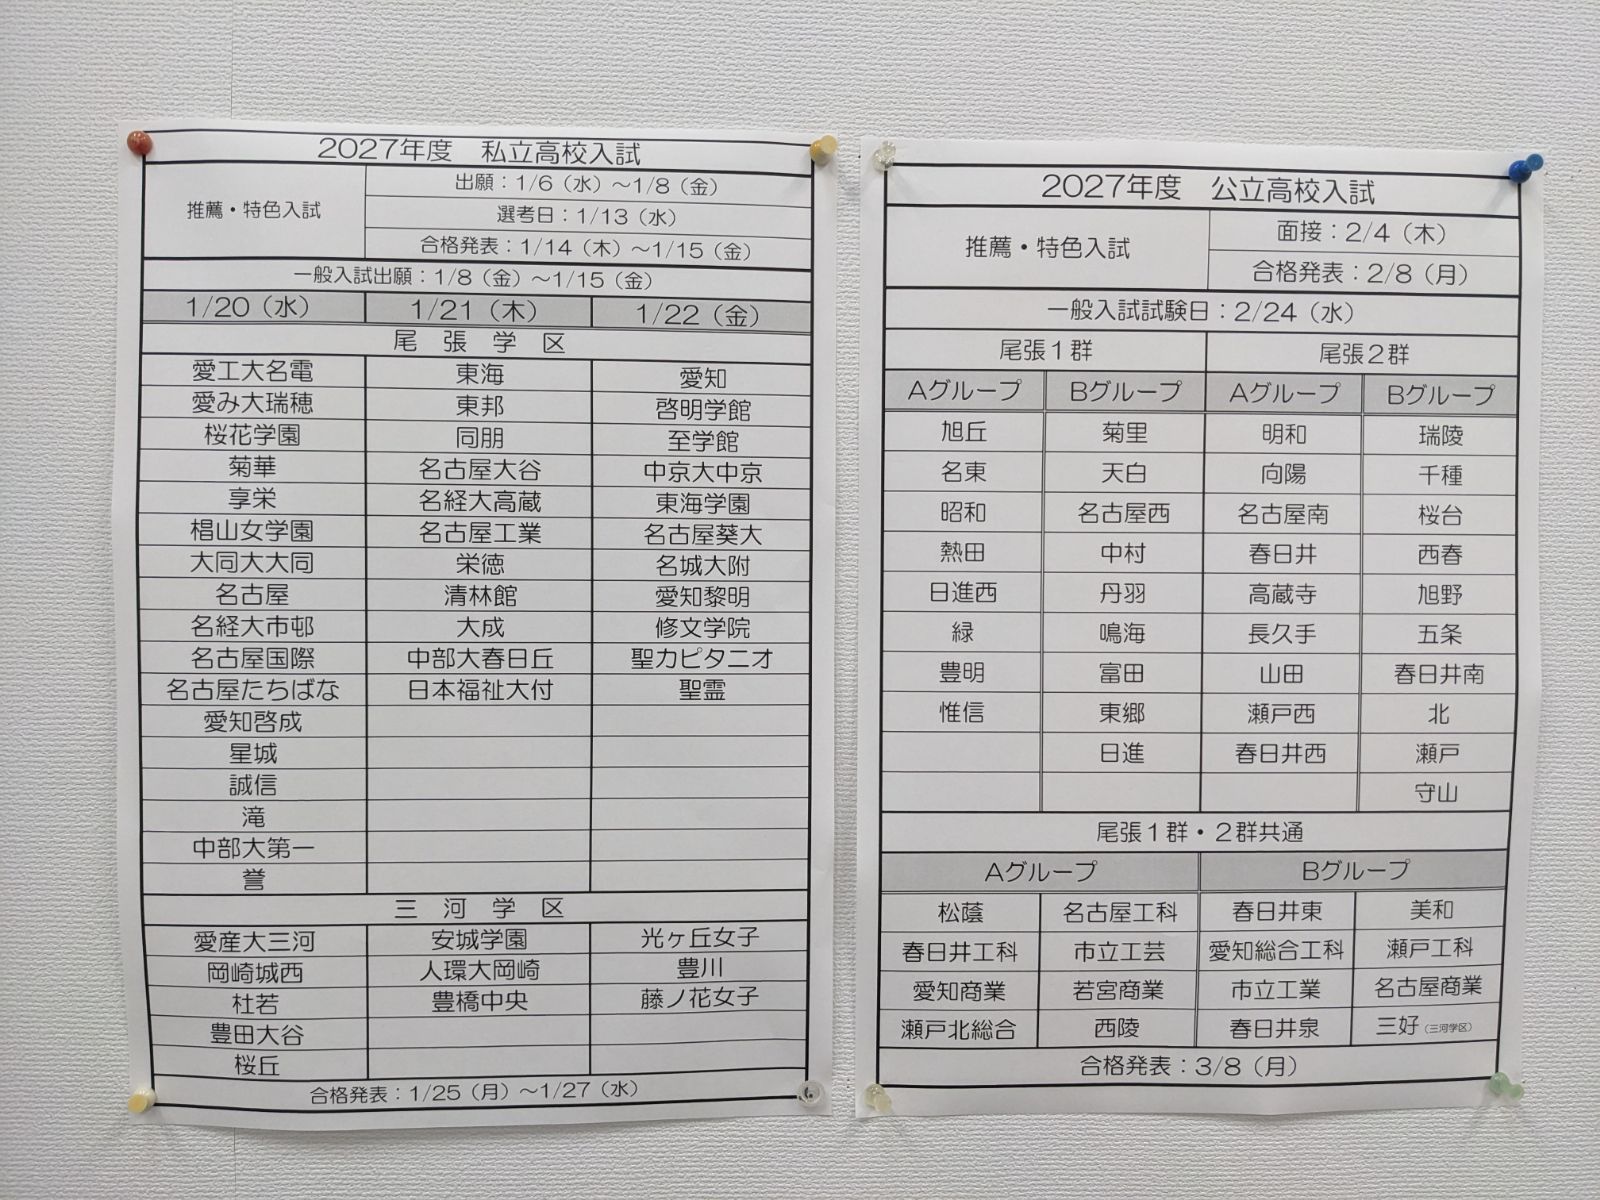 2027年度　私立高校入試
推薦・特色入試
出願：1/6（水）～1/8（金）
選考日：1/13（水）
合格発表：1/14（木）～1/15（金）
一般入試出願：1/8（金）～1/15（金）
1/20（水） 1/21（木） 1/22（金）
尾 張 学 区
愛工大名電 東海 愛知
愛み大瑞穂 東邦 啓明学館
桜花学園 同朋 至学館
菊華 名古屋大谷 中京大中京
享栄 名経大高蔵 東海学園
椙山女学園 名古屋工業 名古屋葵大
大同大大同 栄徳 名城大附
名古屋 清林館 愛知黎明
名経大市邨 大成 修文学院
名古屋国際 中部大春日丘 聖カピタニオ
名古屋たちばな 日本福祉大付 聖霊
愛知啓成
星城
誠信
滝
中部大第一
誉
三 河 学 区
愛産大三河 安城学園 光ヶ丘女子
岡崎城西 人環大岡崎 豊川
杜若 豊橋中央 藤ノ花女子
豊田大谷
桜丘
合格発表：1/25（月）～1/27（水）
2027年度　公立高校入試
推薦・特色入試
面接：2/4（木）
合格発表：2/8（月）
一般入試試験日：2/24（水）
尾張1群 尾張2群
Aグループ Bグループ Aグループ Bグループ
旭丘 菊里 明和 瑞陵
名東 天白 向陽 千種
昭和 名古屋西 名古屋南 桜台
熱田 中村 春日井 西春
日進西 丹羽 高蔵寺 旭野
緑 鳴海 長久手 五条
豊明 富田 山田 春日井南
惟信 東郷 瀬戸西 北
日進 春日井西 瀬戸
守山
尾張1群・2群共通
Aグループ Bグループ
松蔭 名古屋工科 春日井東 美和
春日井工科 市立工芸 愛知総合工科 瀬戸工科
愛知商業 若宮商業 市立工業 名古屋商業
瀬戸北総合 西陵 春日井泉 三好（三河学区）
合格発表：3/8（月）